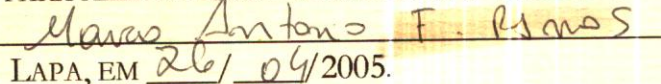 Marco Antonio F.
LAPA, EM 26/ 04/2005.